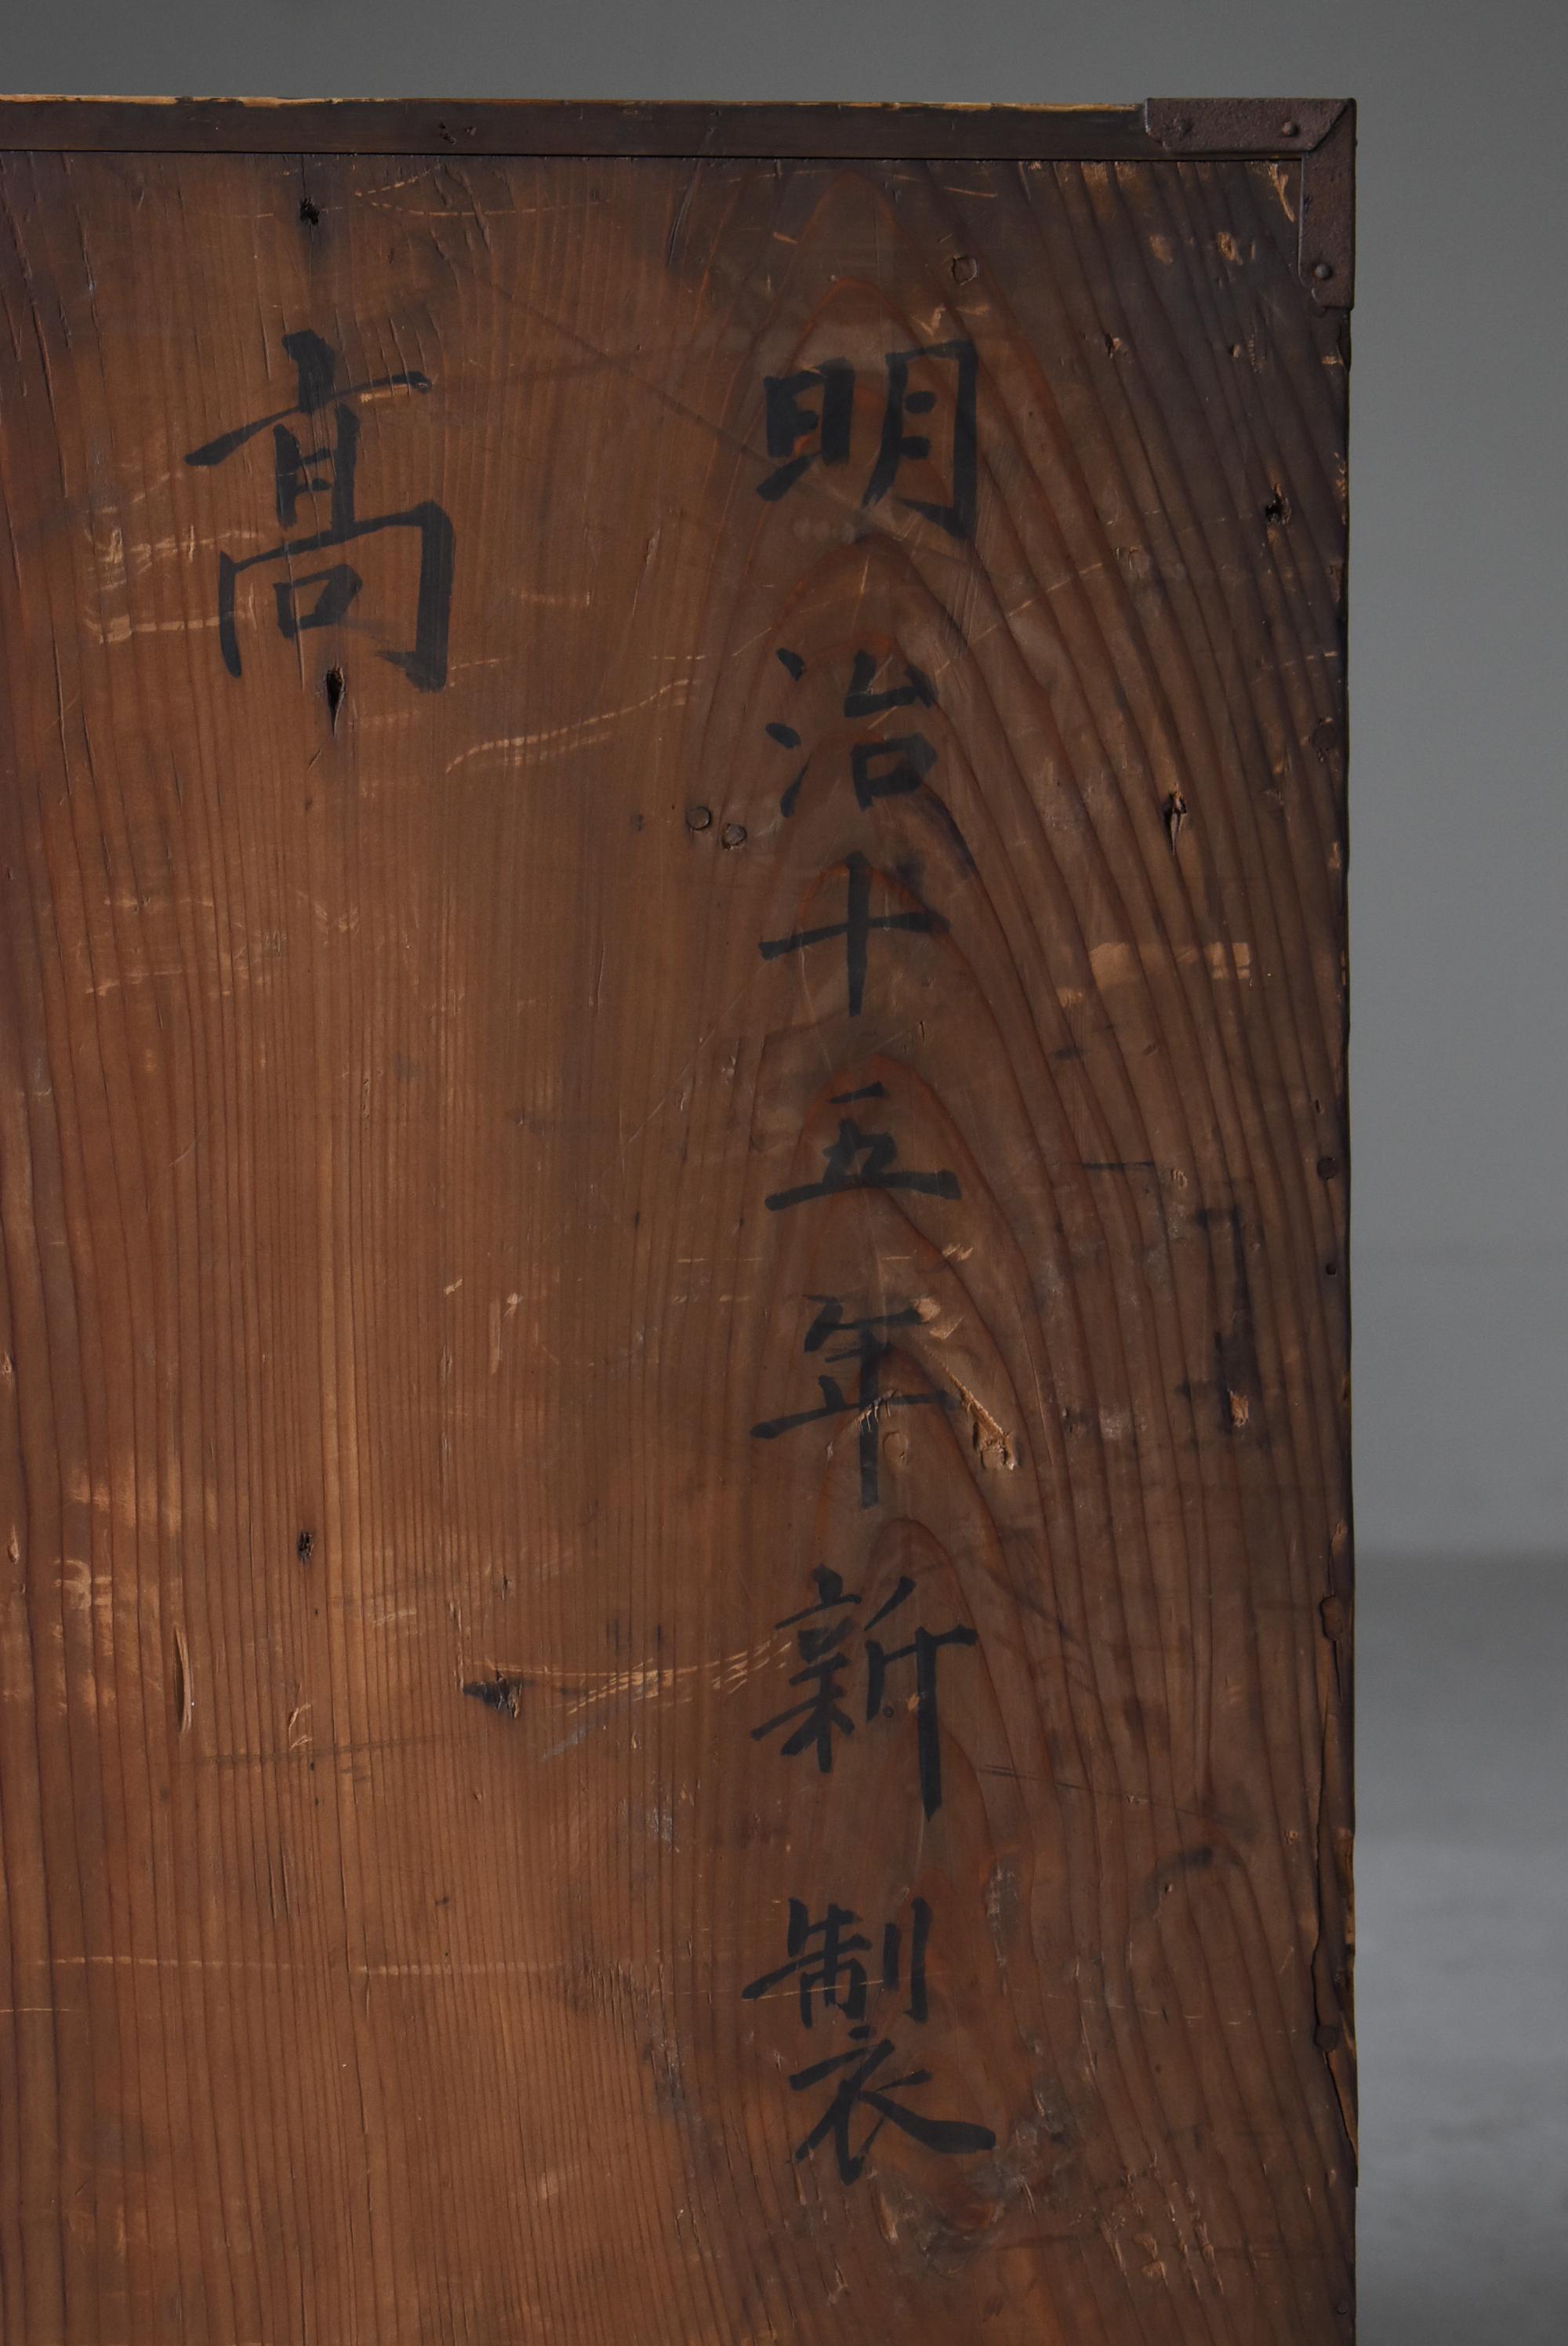 明治十五年新製
髙